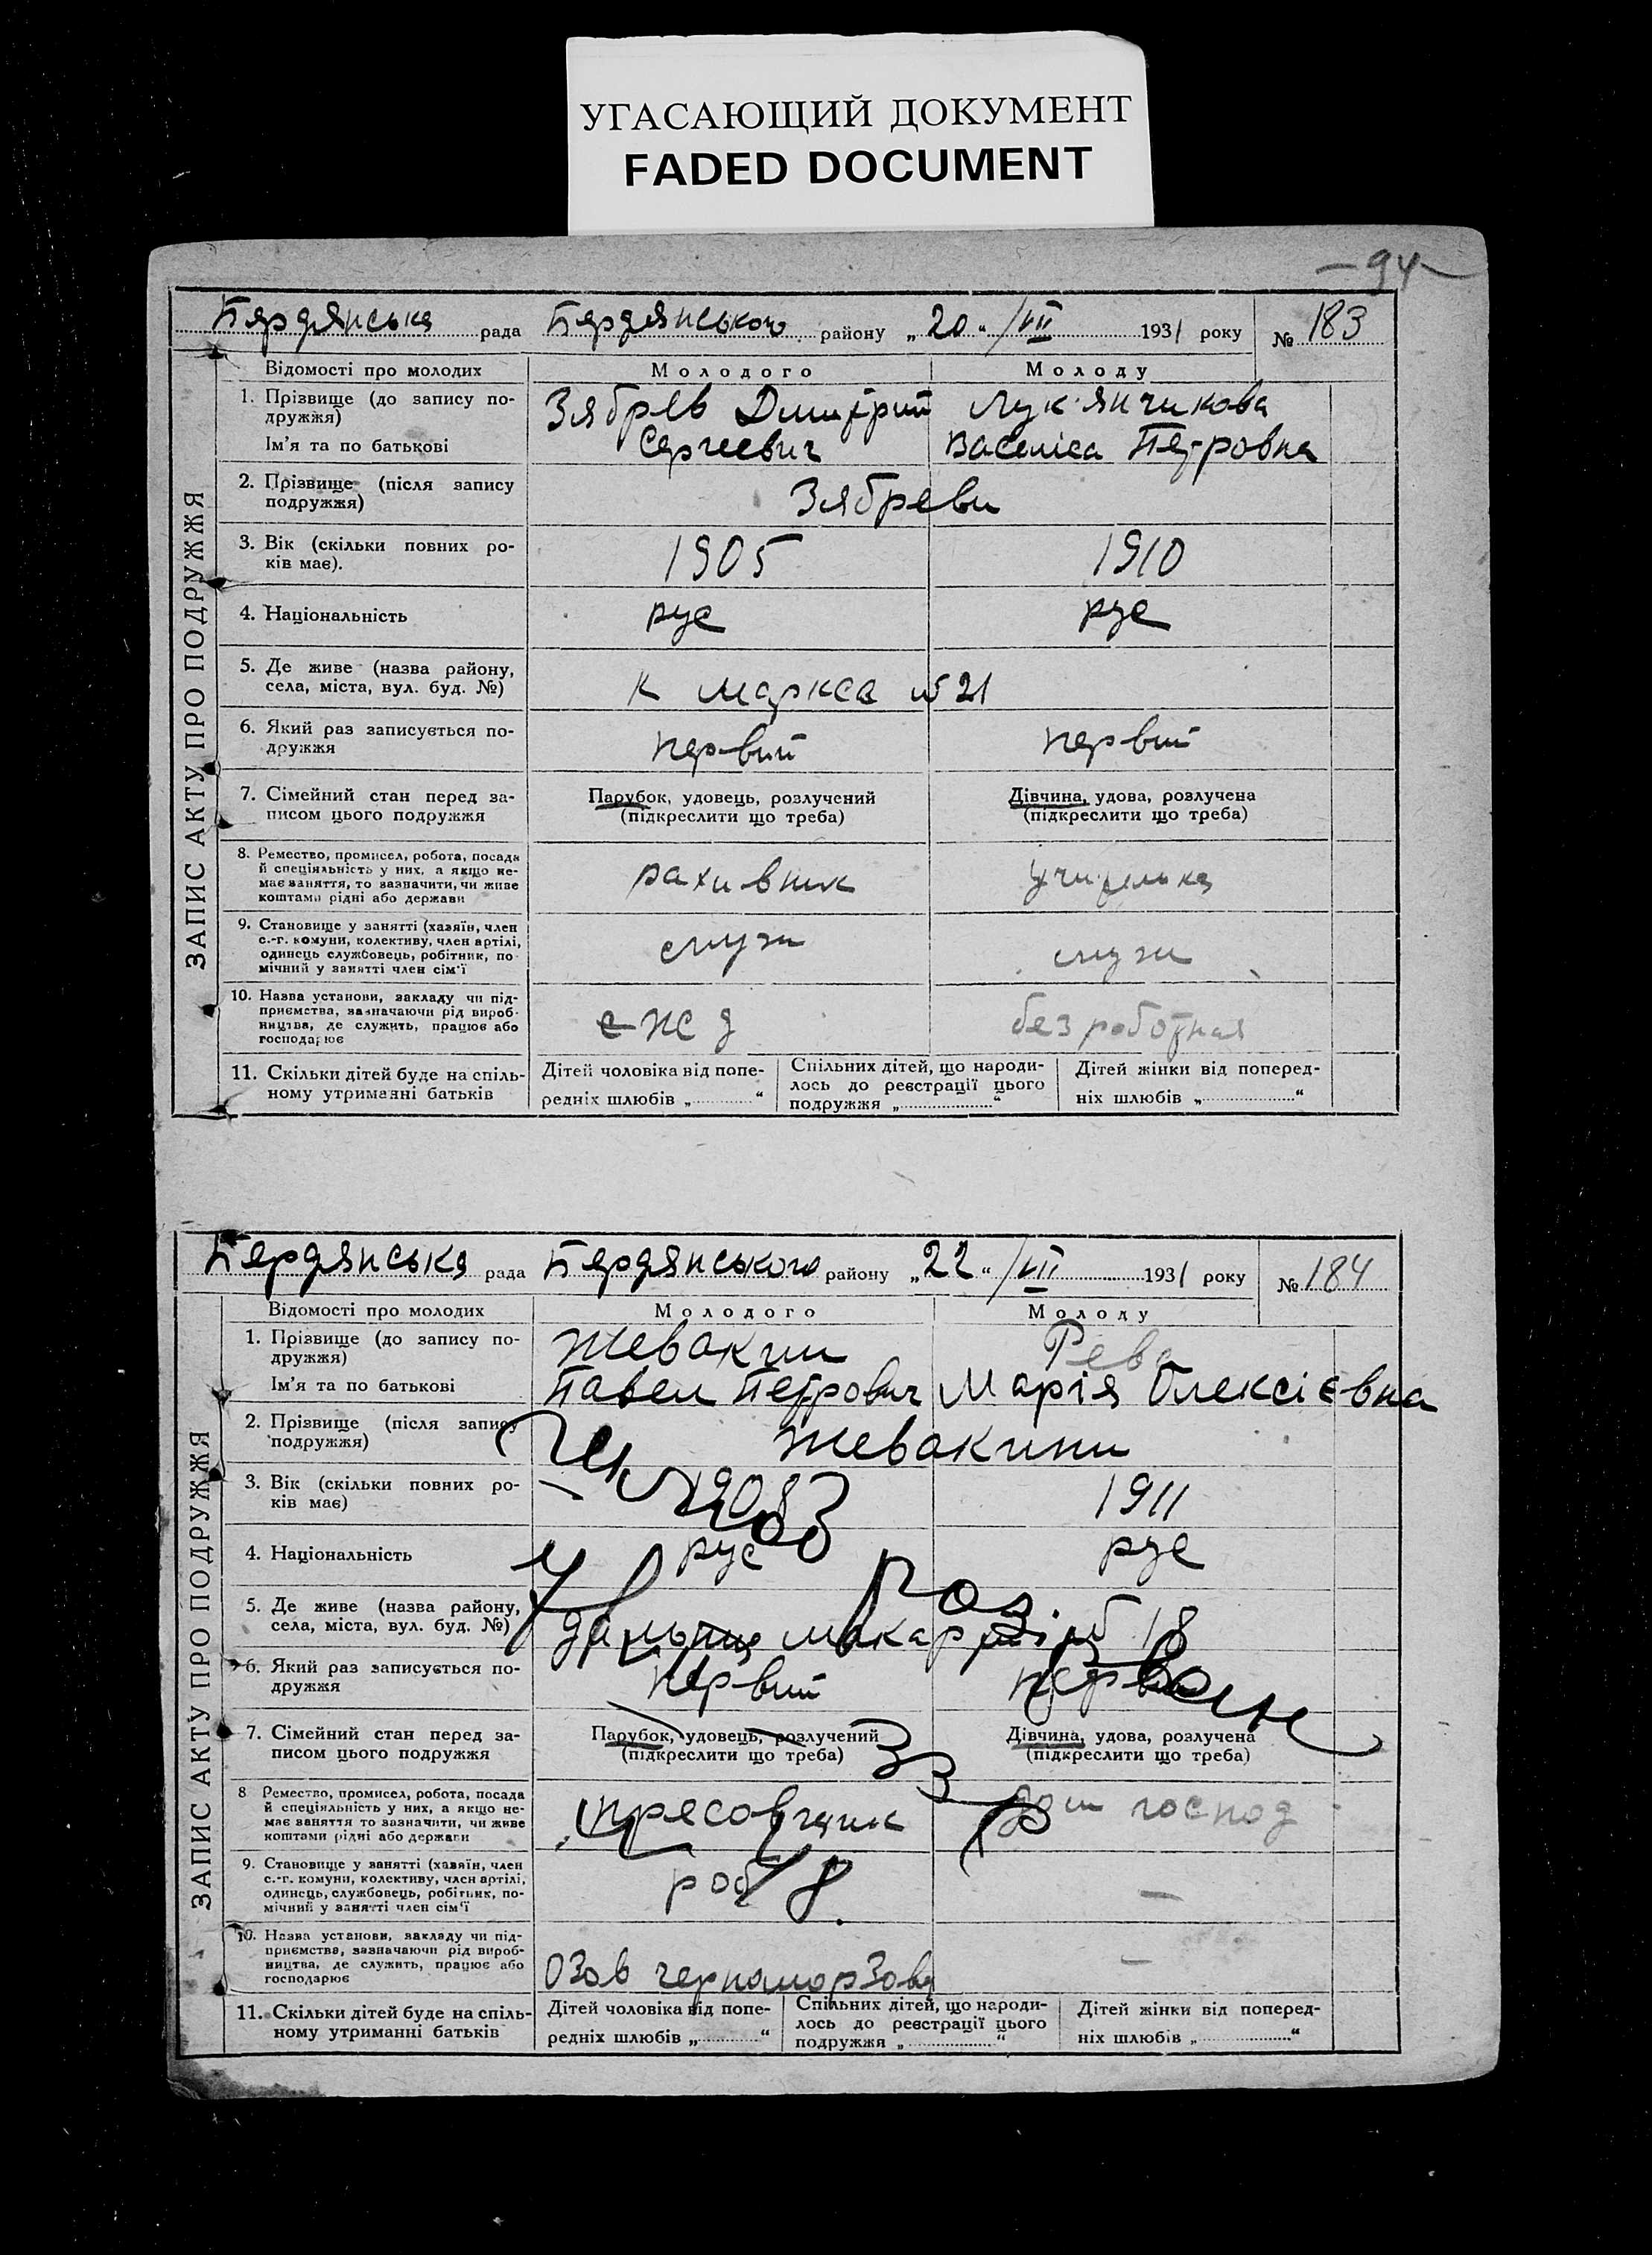 УГАСАЮЩИЙ ДОКУМЕНТ
FADED DOCUMENT
— 94
Бердянська рада Бердянського району „20“ /VII 1931 року № 183
ЗАПИС АКТУ ПРО ПОДРУЖЖЯ
Відомості про молодих Молодого Молоду
1. Прізвище (до запису по-
дружжя)
Ім'я та по батькові
Зябрев Дмитрий
Сергеевич
Лук'янчикова
Василиса Петровна
2. Прізвище (після запису
подружжя)
Зябреви
3. Вік (скільки повних ро-
ків має).
1905 1910
4. Національність рус рус
5. Де живе (назва району,
села, міста, вул. буд. №)
К Маркса № 21
6. Який раз записується по-
дружжя
первий первий
7. Сімейний стан перед за-
писом цього подружжя
Парубок, удовець, розлучений
(підкреслити що треба)
Дівчина, удова, розлучена
(підкреслити що треба)
8. Ремество, промисел, робота, посада
й спеціяльність у них, а якщо не-
має заняття, то зазначити, чи живе
коштами рідні або держави
рахивник учителька
9. Становище у занятті (хазяїн, член
с.-г. комуни, колективу, член артілі,
одинець службовець, робітник, по
мічний у занятті член сім'ї
служ служ
10. Назва установи, закладу чи під-
приємства, зазначаючи рід вироб-
ництва, де служить, працює або
господарює
безработная
11. Скільки дітей буде на спіль-
ному утриманні батьків
Дітей чоловіка від попе-
редніх шлюбів „ “
Спільних дітей, що народи-
лось до реєстрації цього
подружжя „ “
Дітей жінки від поперед-
ніх шлюбів „ “
Бердянська рада Бердянського району „22“ /VII 1931 року № 184
ЗАПИС АКТУ ПРО ПОДРУЖЖЯ
Відомості про молодих Молодого Молоду
1. Прізвище (до запису по-
дружжя)
Ім'я та по батькові
Жевакин
Павел Петрович
Рева
Марія Олексієвна
2. Прізвище (після запису
подружжя)
Жевакини
3. Вік (скільки повних ро-
ків має)
1911
4. Національність рус рус
5. Де живе (назва району,
села, міста, вул. буд. №)
18
6. Який раз записується по-
дружжя
первий первий
7. Сімейний стан перед за-
писом цього подружжя
Парубок, удовець, розлучений
(підкреслити що треба)
Дівчина, удова, розлучена
(підкреслити що треба)
8 Ремество, промисел, робота, посада
й спеціяльність у них, а якщо не-
має заняття то зазначити, чи живе
коштами рідні або держави
пресовщик дом господ
9. Становище у занятті (хазяїн, член
с.-г. комуни, колективу, член артілі,
одинець, службовець, робітник, по-
мічний у занятті член сім'ї
роб —
10. Назва установи, закладу чи під-
приємства, зазначаючи рід вироб-
ництва, де служить, працює або
господарює
—
11. Скільки дітей буде на спіль-
ному утриманні батьків
Дітей чоловіка від попе-
редніх шлюбів „ “
Спільних дітей, що народи-
лось до реєстрації цього
подружжя „ “
Дітей жінки від поперед-
ніх шлюбів „ “